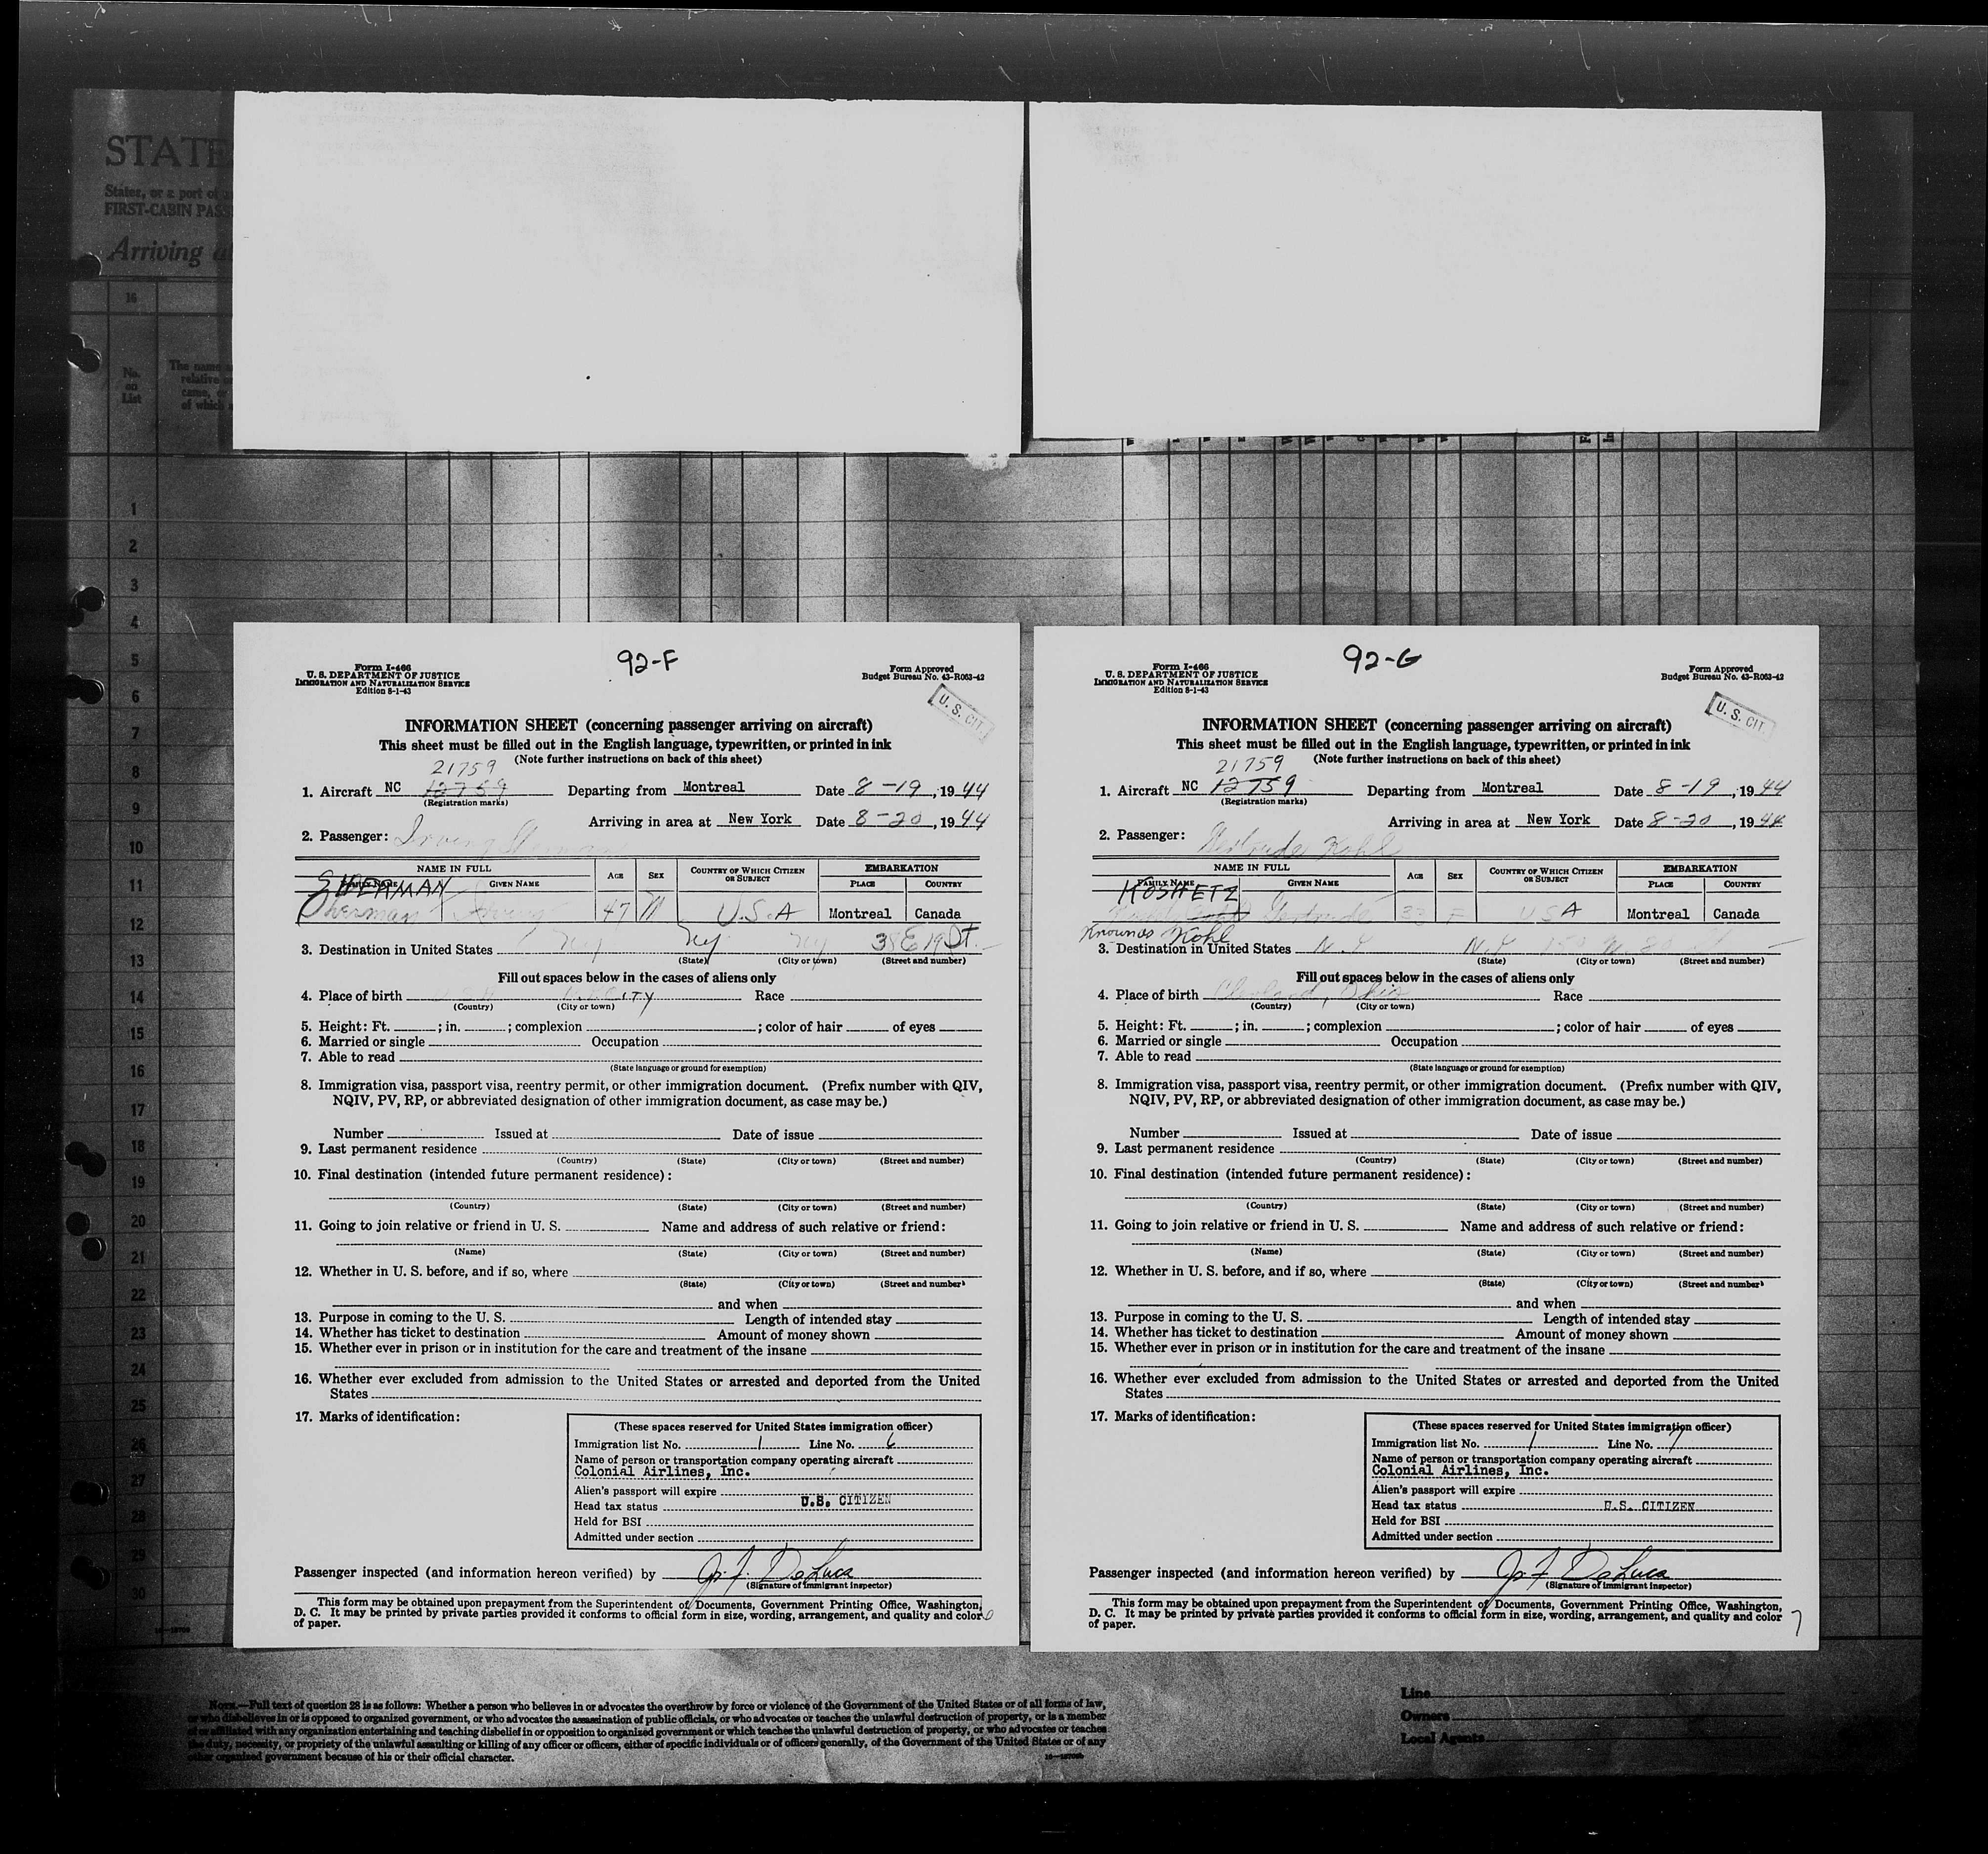 STATE
States, or a port of
FIRST-CABIN PASS
Arriving at
16
No.
on
List
The name
relative
came, or
of which
1
2
3
4
5
6
7
8
9
10
11
12
13
14
15
16
17
18
19
20
21
22
23
24
25
26
27
28
29
30
92-F
Form I-466
U. S. DEPARTMENT OF JUSTICE
IMMIGRATION AND NATURALIZATION SERVICE
Edition 8-1-43
Form Approved
Budget Bureau No. 43-R063-42
U. S. CIT.
INFORMATION SHEET (concerning passenger arriving on aircraft)
This sheet must be filled out in the English language, typewritten, or printed in ink
(Note further instructions on back of this sheet)
21759
1. Aircraft NC 12759 Departing from Montreal Date 8-19, 1944
(Registration marks)
Arriving in area at New York Date 8-20, 1944
2. Passenger: Irving Sherman
NAME IN FULL AGE SEX COUNTRY OF WHICH CITIZEN OR SUBJECT EMBARKATION
FAMILY NAME GIVEN NAME PLACE COUNTRY
SHERMAN
Sherman Irving 47 M U.S.A Montreal Canada
3. Destination in United States NY NY NY 38 E 19 St.
(State) (City or town) (Street and number)
Fill out spaces below in the cases of aliens only
4. Place of birth CITY Race
(Country) (City or town)
5. Height: Ft. ; in. ; complexion ; color of hair of eyes
6. Married or single Occupation
7. Able to read
(State language or ground for exemption)
8. Immigration visa, passport visa, reentry permit, or other immigration document. (Prefix number with QIV,
NQIV, PV, RP, or abbreviated designation of other immigration document, as case may be.)
Number Issued at Date of issue
9. Last permanent residence
(Country) (State) (City or town) (Street and number)
10. Final destination (intended future permanent residence):
(Country) (State) (City or town) (Street and number)
11. Going to join relative or friend in U. S. Name and address of such relative or friend:
(Name) (State) (City or town) (Street and number)
12. Whether in U. S. before, and if so, where
(State) (City or town) (Street and number)
and when
13. Purpose in coming to the U. S. Length of intended stay
14. Whether has ticket to destination Amount of money shown
15. Whether ever in prison or in institution for the care and treatment of the insane
16. Whether ever excluded from admission to the United States or arrested and deported from the United
States
17. Marks of identification:
(These spaces reserved for United States immigration officer)
Immigration list No. 1 Line No. 6
Name of person or transportation company operating aircraft
Colonial Airlines, Inc.
Alien's passport will expire
Head tax status U.S. CITIZEN
Held for BSI
Admitted under section
Passenger inspected (and information hereon verified) by Jo. F. DeLuca
(Signature of immigrant inspector)
This form may be obtained upon prepayment from the Superintendent of Documents, Government Printing Office, Washington,
D. C. It may be printed by private parties provided it conforms to official form in size, wording, arrangement, and quality and color
of paper.
6
92-G
Form I-466
U. S. DEPARTMENT OF JUSTICE
IMMIGRATION AND NATURALIZATION SERVICE
Edition 8-1-43
Form Approved
Budget Bureau No. 43-R063-42
U. S. CIT.
INFORMATION SHEET (concerning passenger arriving on aircraft)
This sheet must be filled out in the English language, typewritten, or printed in ink
(Note further instructions on back of this sheet)
21759
1. Aircraft NC 12759 Departing from Montreal Date 8-19, 1944
(Registration marks)
Arriving in area at New York Date 8-20, 1944
2. Passenger: Gertrude Kohl
NAME IN FULL AGE SEX COUNTRY OF WHICH CITIZEN OR SUBJECT EMBARKATION
FAMILY NAME GIVEN NAME PLACE COUNTRY
KOSHETZ
Kohl Gertrude 33 F USA Montreal Canada
Known as Kohl
3. Destination in United States N.Y N.Y 150 W. 80
(State) (City or town) (Street and number)
Fill out spaces below in the cases of aliens only
4. Place of birth Cleveland, Ohio Race
(Country) (City or town)
5. Height: Ft. ; in. ; complexion ; color of hair of eyes
6. Married or single Occupation
7. Able to read
(State language or ground for exemption)
8. Immigration visa, passport visa, reentry permit, or other immigration document. (Prefix number with QIV,
NQIV, PV, RP, or abbreviated designation of other immigration document, as case may be.)
Number Issued at Date of issue
9. Last permanent residence
(Country) (State) (City or town) (Street and number)
10. Final destination (intended future permanent residence):
(Country) (State) (City or town) (Street and number)
11. Going to join relative or friend in U. S. Name and address of such relative or friend:
(Name) (State) (City or town) (Street and number)
12. Whether in U. S. before, and if so, where
(State) (City or town) (Street and number)
and when
13. Purpose in coming to the U. S. Length of intended stay
14. Whether has ticket to destination Amount of money shown
15. Whether ever in prison or in institution for the care and treatment of the insane
16. Whether ever excluded from admission to the United States or arrested and deported from the United
States
17. Marks of identification:
(These spaces reserved for United States immigration officer)
Immigration list No. 1 Line No. 7
Name of person or transportation company operating aircraft
Colonial Airlines, Inc.
Alien's passport will expire
Head tax status U.S. CITIZEN
Held for BSI
Admitted under section
Passenger inspected (and information hereon verified) by Jo. F DeLuca
(Signature of immigrant inspector)
This form may be obtained upon prepayment from the Superintendent of Documents, Government Printing Office, Washington,
D. C. It may be printed by private parties provided it conforms to official form in size, wording, arrangement, and quality and color
of paper.
7
NOTE.—Full text of question 28 is as follows: Whether a person who believes in or advocates the overthrow by force or violence of the Government of the United States or of all forms of law,
or who disbelieves in or is opposed to organized government, or who advocates the assassination of public officials, or who advocates or teaches the unlawful destruction of property, or is a member
of or affiliated with any organization entertaining and teaching disbelief in or opposition to organized government or which teaches the unlawful destruction of property, or who advocates or teaches
the duty, necessity, or propriety of the unlawful assaulting or killing of any officer or officers, either of specific individuals or of officers generally, of the Government of the United States or of any
other organized government because of his or their official character.
Line
Owners
Local Agents